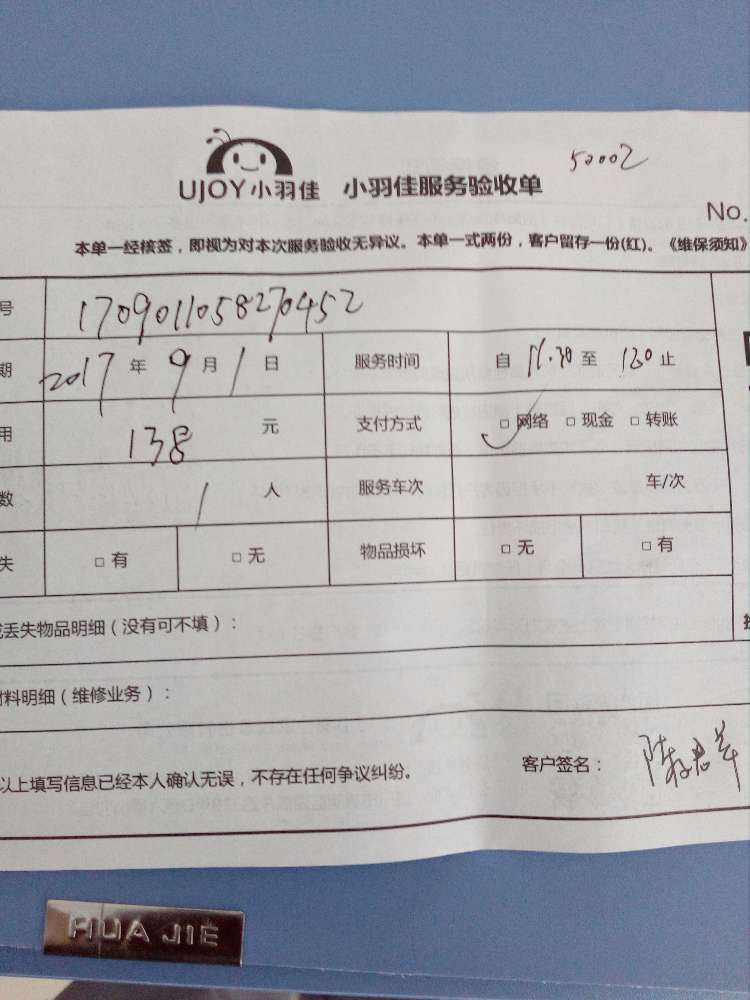 50002
UJOY小羽佳 小羽佳服务验收单
No.
本单一经核签，即视为对本次服务验收无异议。本单一式两份，客户留存一份(红)。《维保须知》
号 1709011058270452
期 2017年9月1日 服务时间 自11.30至130止
用 138元 支付方式 □网络 □现金 □转账
数 1人 服务车次 车/次
失 □有 □无 物品损坏 □无 □有
丢失物品明细（没有可不填）：
材料明细（维修业务）：
以上填写信息已经本人确认无误，不存在任何争议纠纷。 客户签名：陈
HUA JIE